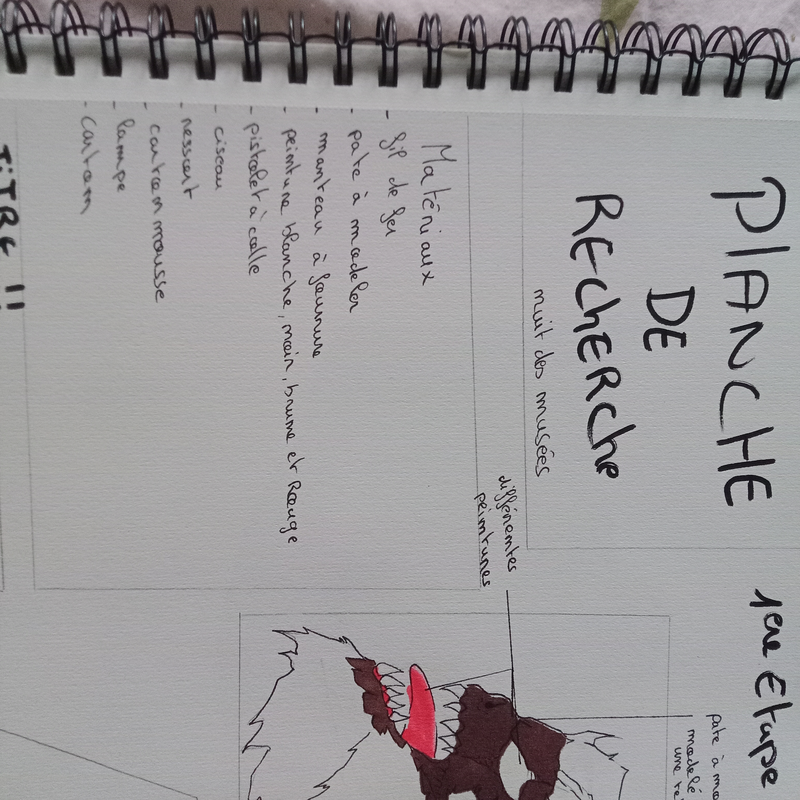 PLANCHE
DE
RECHERCHE
nuit des musées
Matériaux
- fil de fer
- pate à modeler
- manteau à fourrure
- peinture blanche, noir, brune et Rouge
- pistolet à colle
- ciseau
- ressort
- carton mousse
- lampe
- carton
TITRE !!
différentes
peintures
1ère Etape
pate à mo
modelé
une te